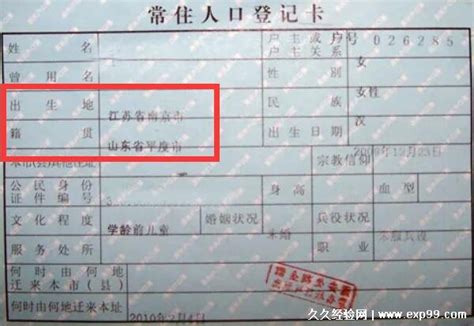 常住人口登记卡
姓 名
户主或 户 号 026285
户主关系 女
曾用名
性 别 女性
出生地 江苏省南京市
民 族 汉
籍 贯 山东省平度市
出生日期 2006年12月23日
本市(县)其他住址
宗教信仰
公民身份证件编号 3
身 高
血型
文化程度 学龄前儿童
婚姻状况 未婚
兵役状况 未服兵役
服务处所
职 业
何时由何地迁来本市(县)
何时由何地迁来本址 2010年2月4日
久久经验网 | www.exp99.com